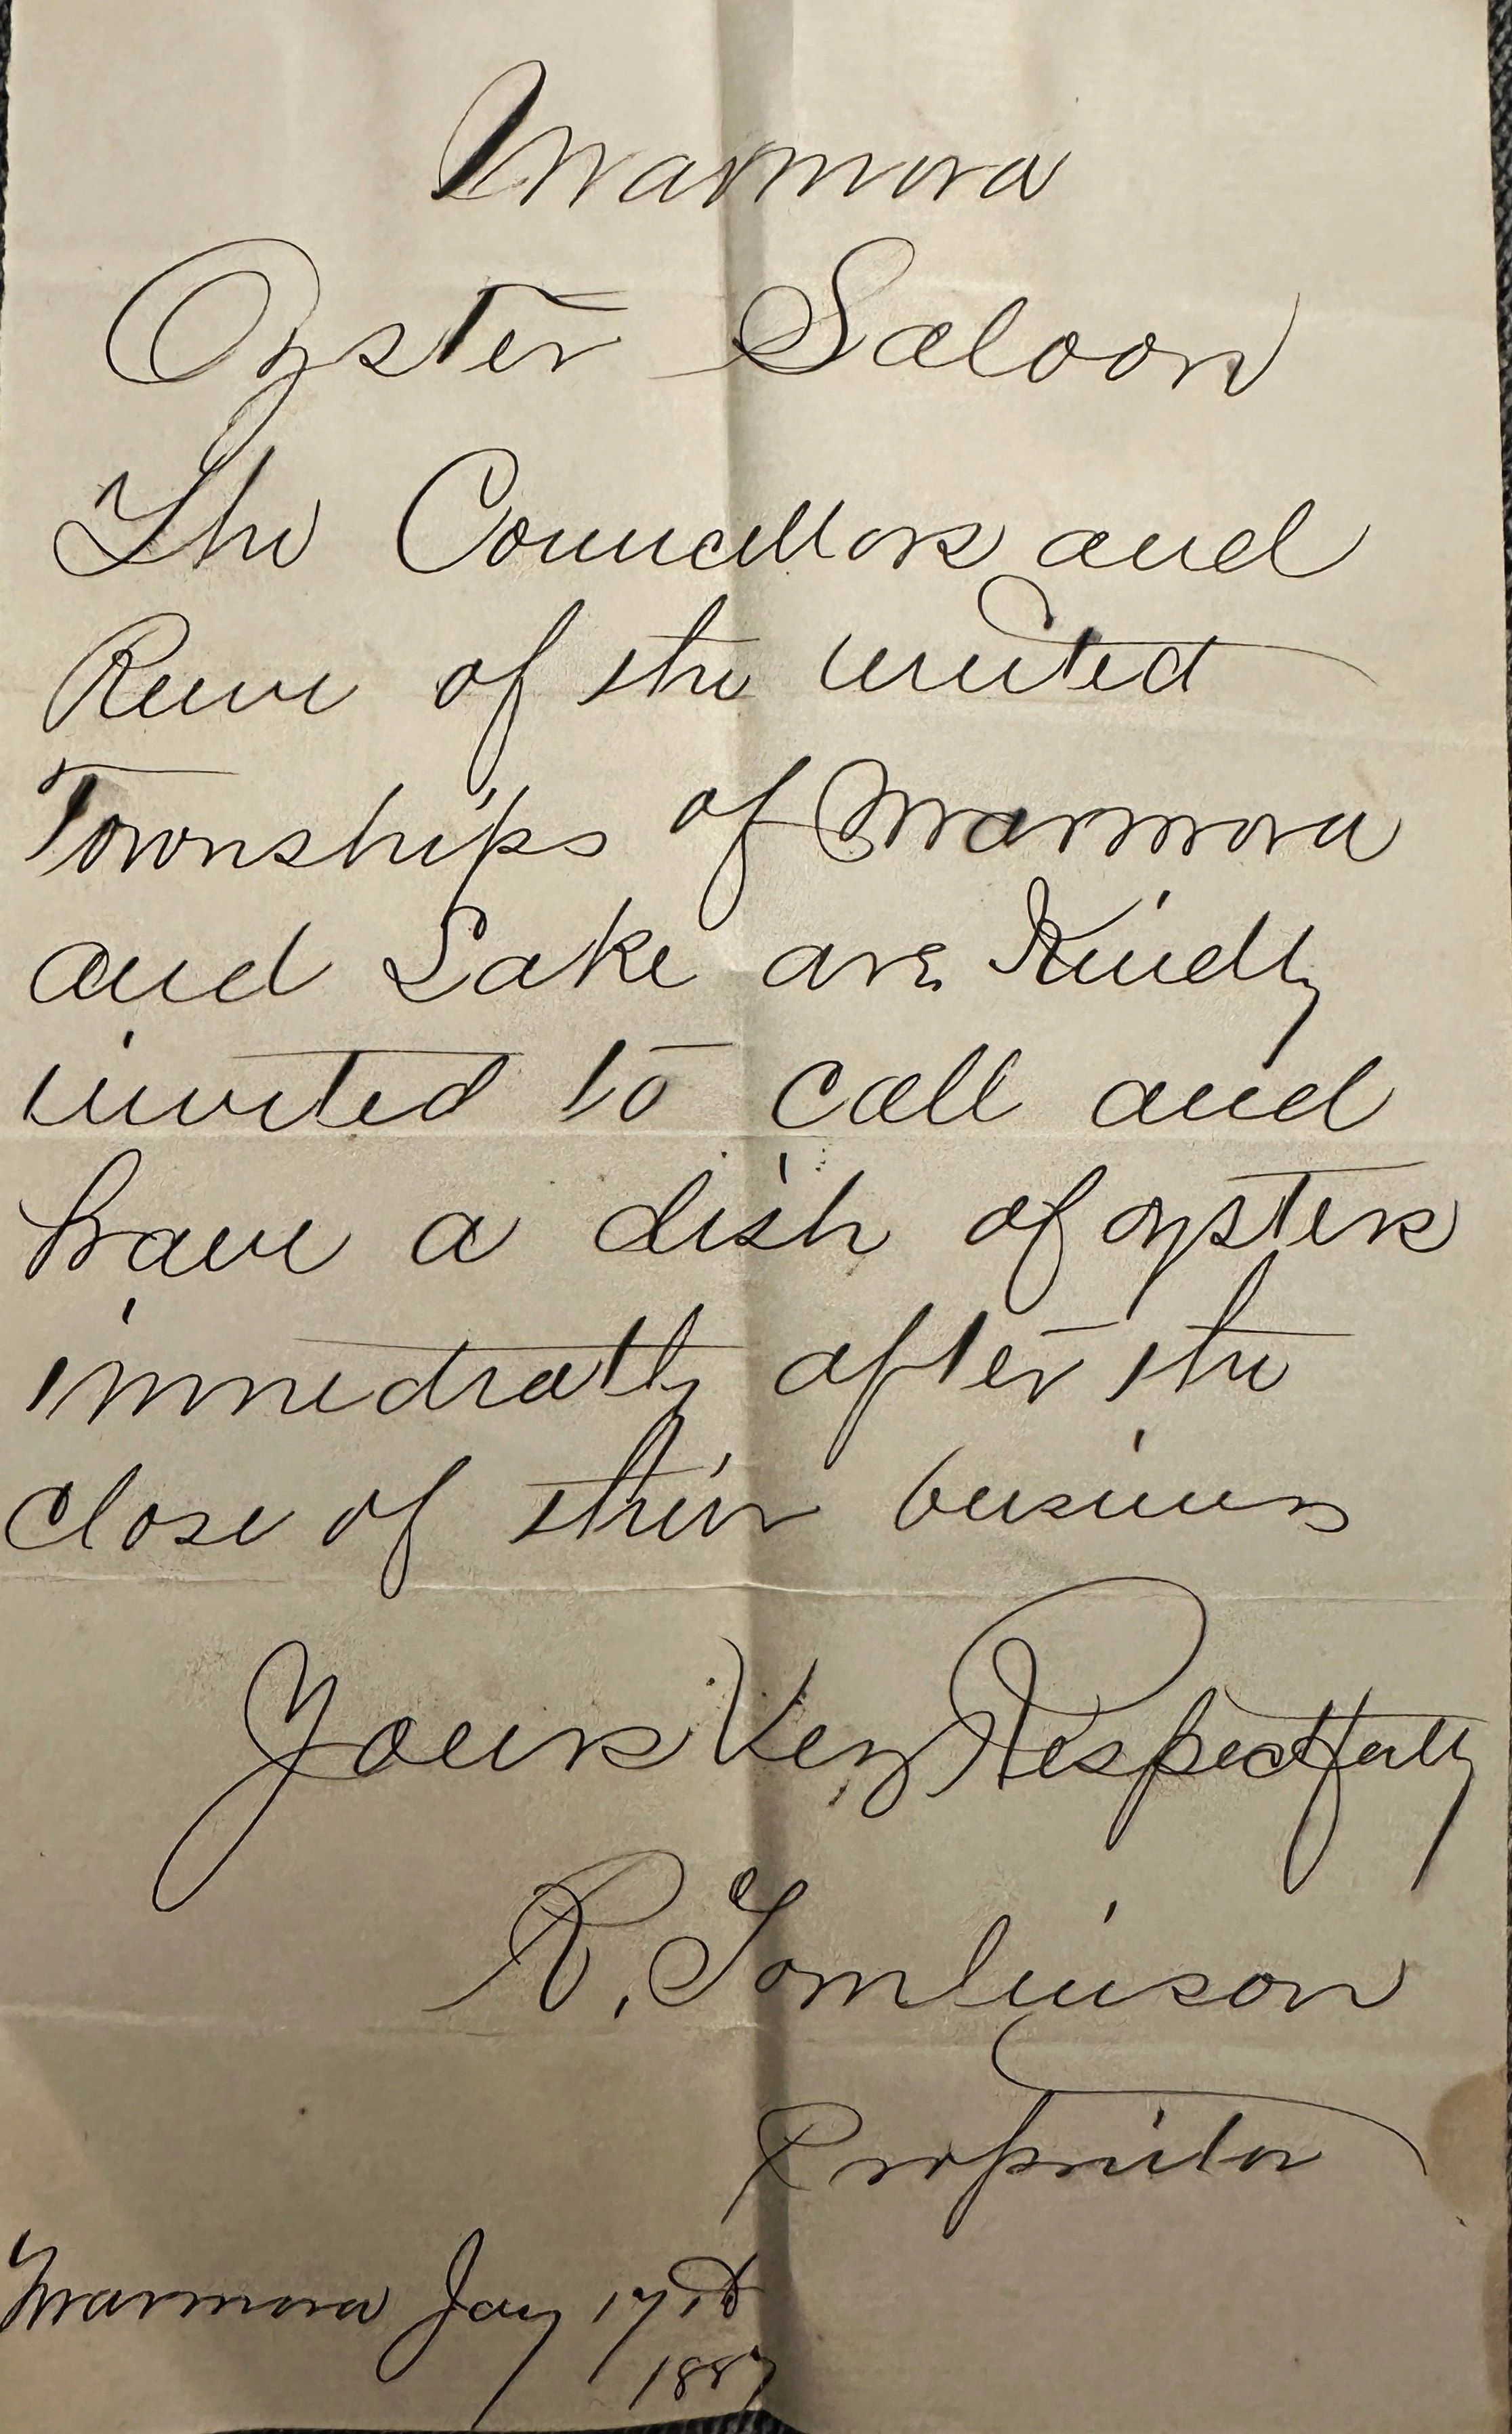 Marmora
Oyster Saloon
The Councillors and
Reeve of the united
Townships of Marmora
and Lake are Kindly
invited to call and
have a dish of oysters
immediatly after the
close of their business
Yours Very Respectfully
R. Tomlinson
Proprietor
Marmora Jany 17th
1887